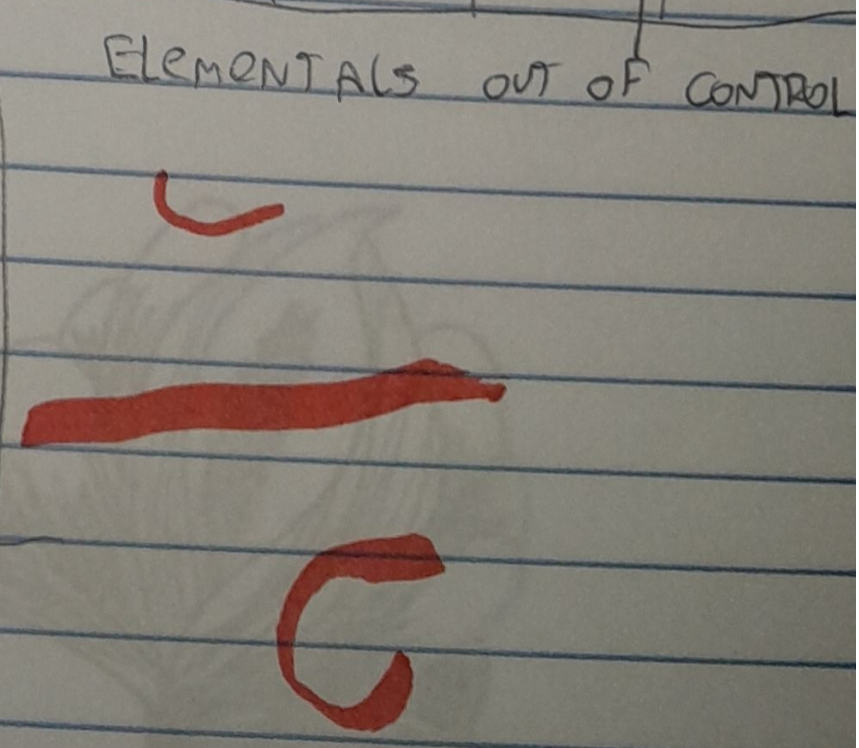 ELEMENTALS OUT OF CONTROL